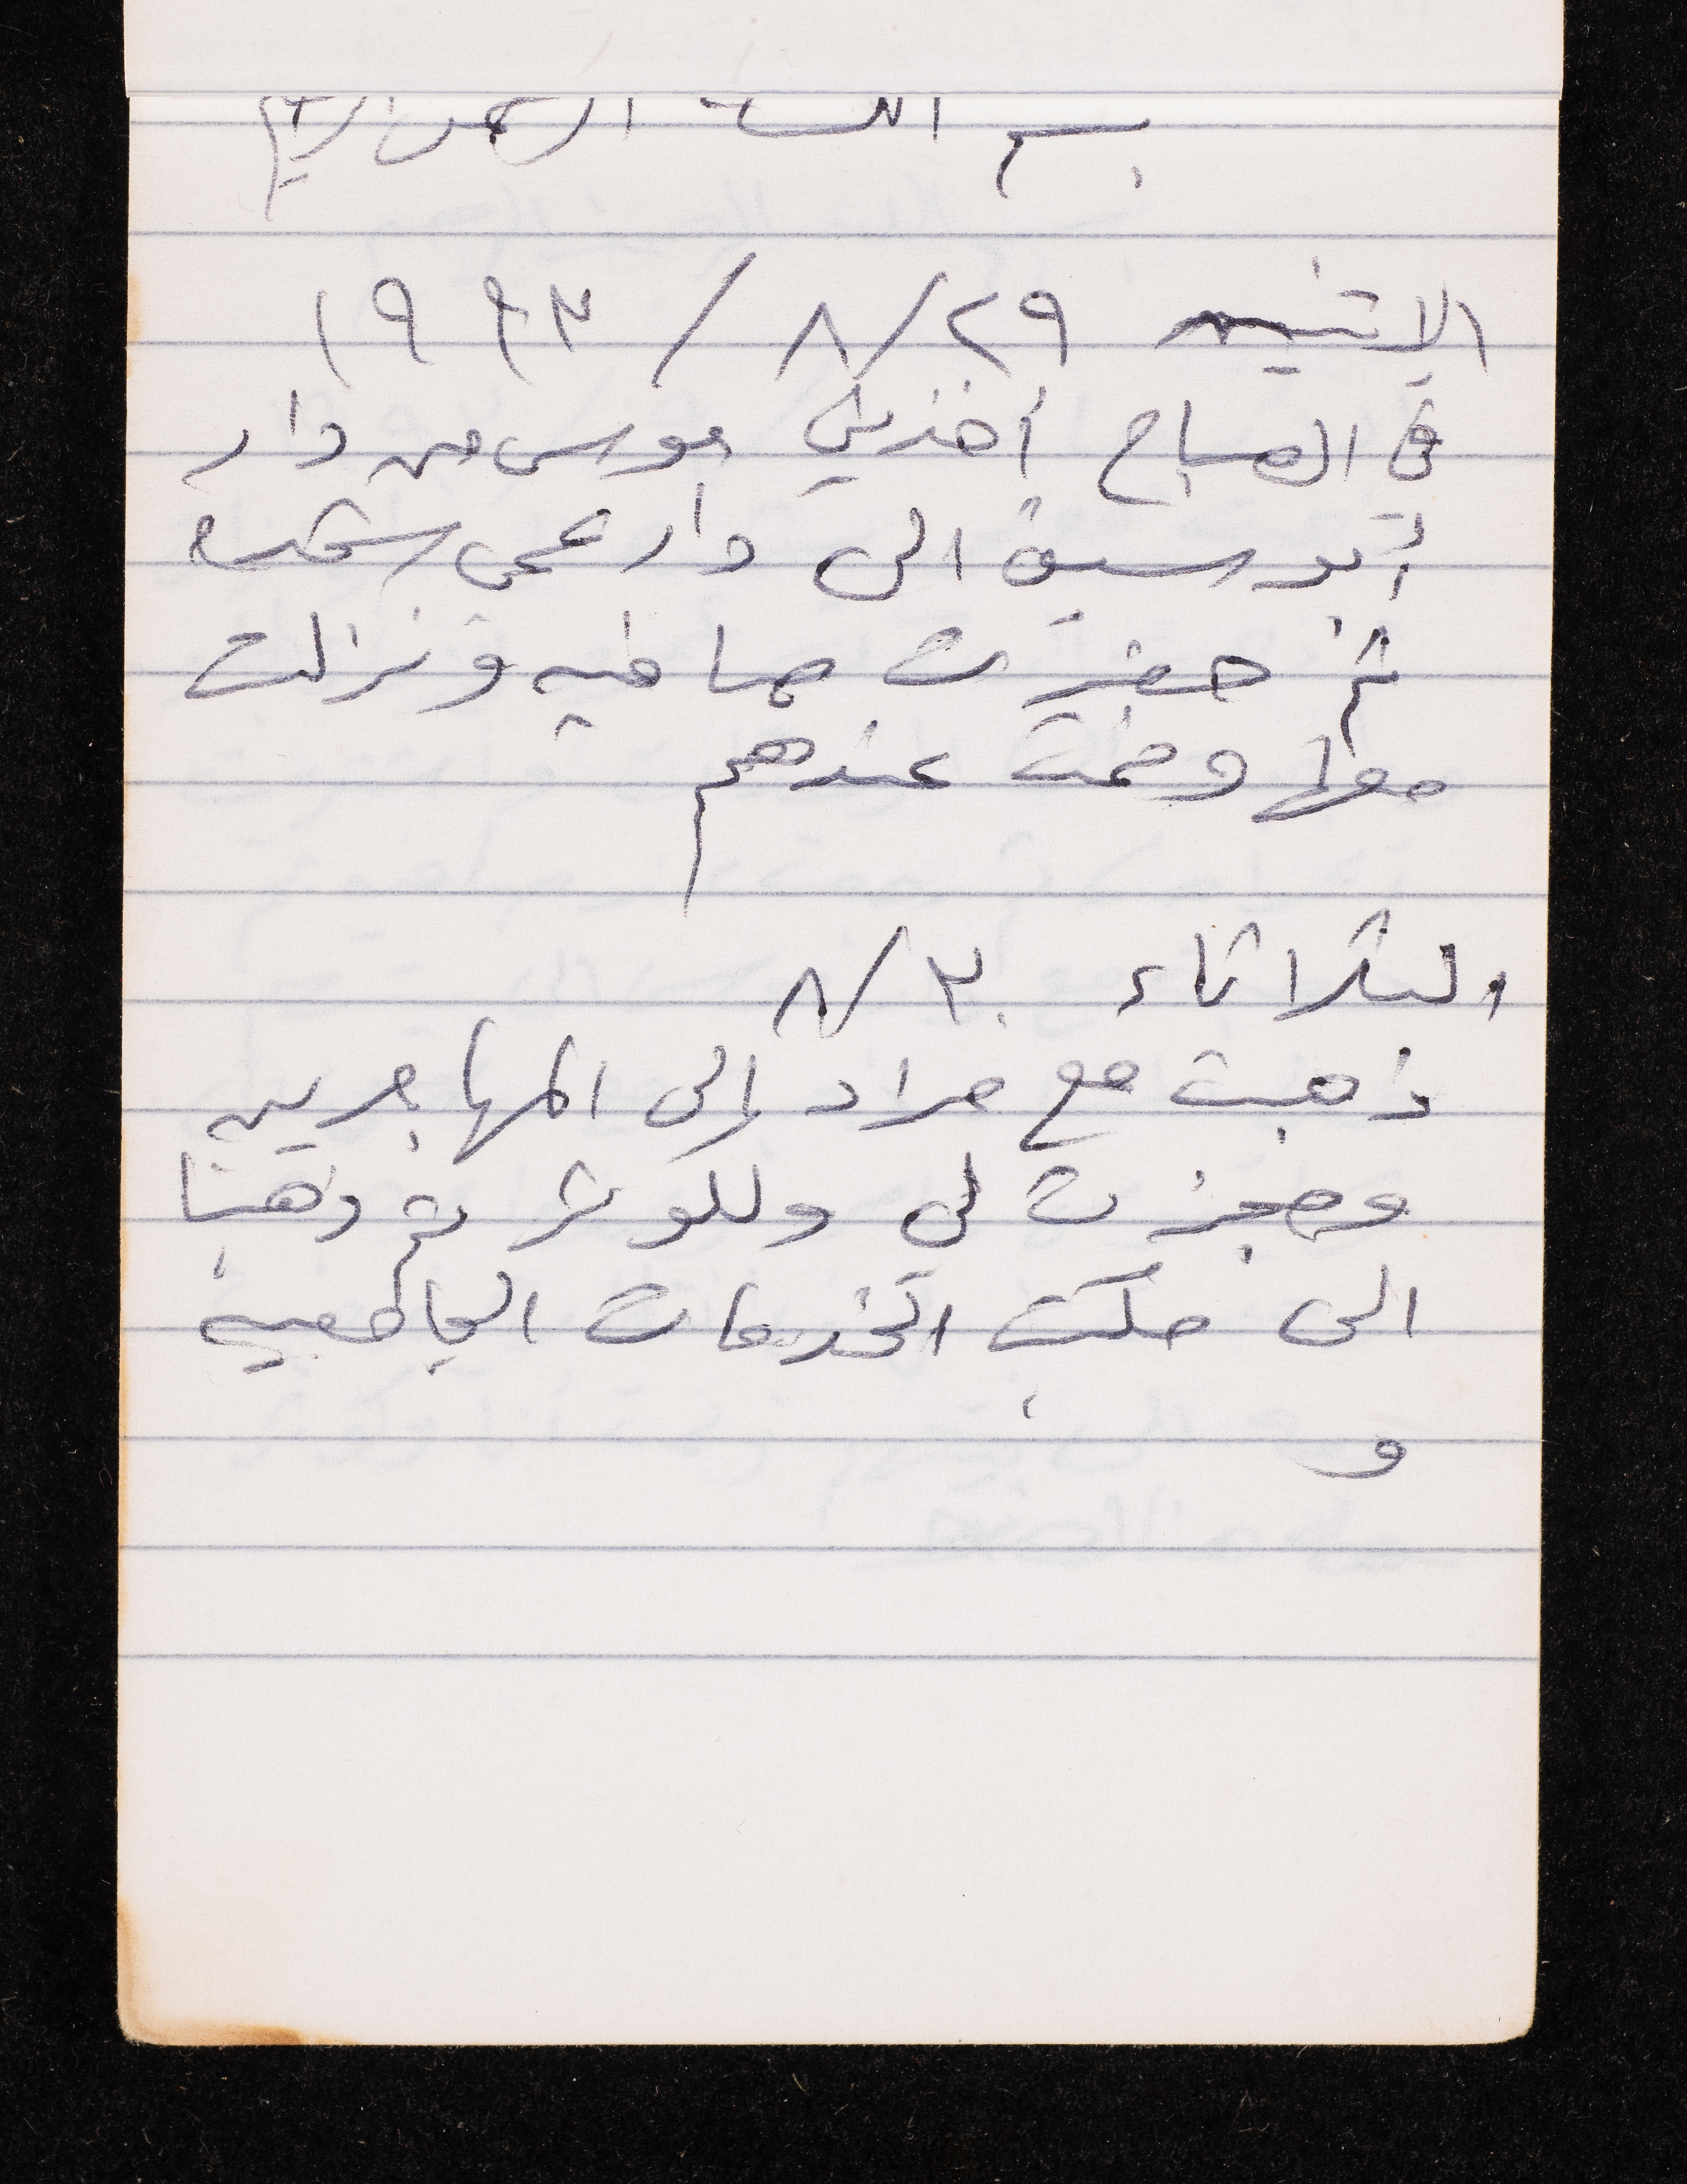 بسم الله الرحمن الرحيم
الاثنين ٢٩/ ٨ / ١٩٩٣
في الصباح أخذني موسى من دار
أبو سيف الى دار عمي
ثم حضرت صافيه ونزلت
معها ونمت عندهم
الثلاثاء ٣٠/ ٨
ذهبت مع مراد إلى المهاجرين
وحجزت لي وللكوثر ثم ذهبنا
الى مكتب الخدمات الجامعيه
و